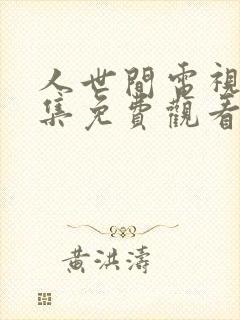 人世間電視
集免費觀看
黃洪濤